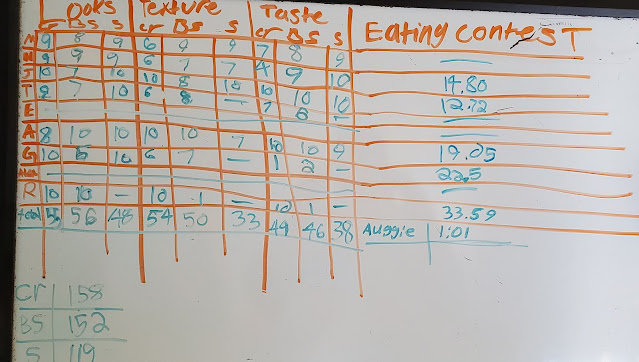 Looks Texture Taste Eating contesT
cr Bs S cr Bs S cr Bs S
N 9 8 9 6 9 9 7 8 9
N 9 9 9 6 7 7 4 9 10
J 10 7 10 10 8 10 14.80
T 9 7 10 6 8 — 10 10 12.72
E 7 8 —
A 8 10 10 10 10 7 10 10 9 19.05
G 10 5 10 6 7 — 1 2 — 22.5
R 10 10 — 10 1 — 10 1 — 33.59
total 56 48 54 50 33 49 46 38 Auggie 1:01
Cr 158
BS 152
S 119